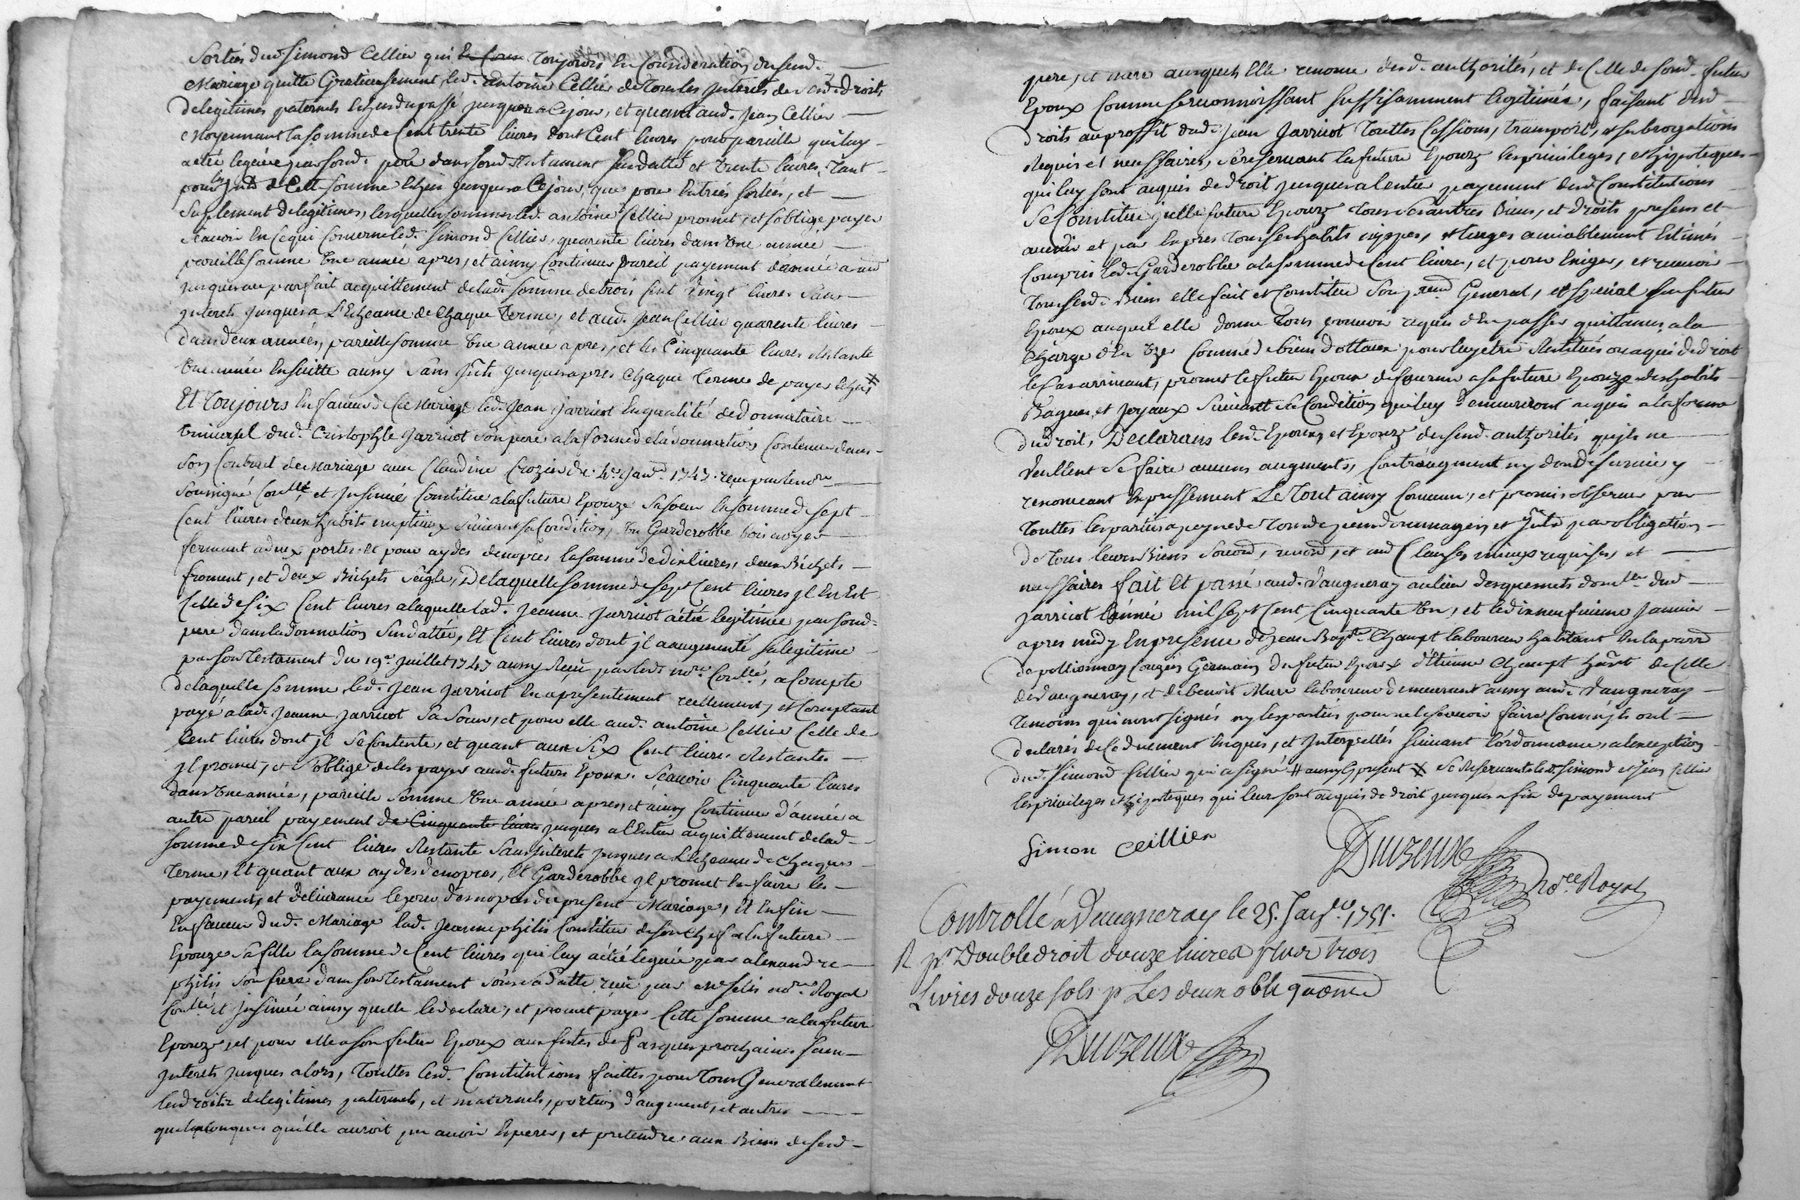 Sortés dud. Simond Cellier qui en outre Toujours en Consideration dusend.
Mariage quitte Gratieusement led. Antoine Cellier de tous les Interets de sesd. droits
de legitimes paternels echus du passé jusques a Cejour, et quant aud. Jean Cellier
Moyennant la somme de Cent trente livres dont Cent livres pour pareille qui luy
a eté leguée par sond. pere dans sond. testament susdatté et trente livres Tant
pour Jnts de Cette somme echus jusques a Cejour, que pour entrées sorties, et
suplement de legitimes, lesquelles sommes led. antoine Cellier promet, et s'oblige payer
sçavoir en Ce qui Concerne led. Simond Cellier, quarente livres dans Une année
pareille somme Une année apres, et ainsy Continuer pareil payement d'année a au
jusques au parfait acquittement de lad. somme de trois Cent Vingt livres sans
Interets jusques a L'Echeance de Chaque Terme, et aud. Jean Cellier quarente livres
dans deux années, pareille somme Une année apres, et les Cinquante livres Restante
Une année Ensuitte aussy sans Jnts jusques apres Chaque Termes de payer echus #
Et Toujours En faveur de Ce Mariage led. Jean Jarricot En qualité de donnataire
Universel dud. Cristophle Jarricot son pere a la forme de la donnation Contenue dans
son Contrat de Mariage avec Claudine Crozier du 4e. Janv. 1747. reçu par led. nre
soussigné Controllé et Insinué Constitue a la future Epouze sa soeur la somme de sept
Cent livres deux habits nuptiaux suivant sa Condition, Un Garderobbe bois noyer
fermant a deux portes et pour aydes denopces la somme de dix livres, deux Bichets
froment, et deux Bichets seigle, De laquelle somme de sept Cent livres jl En Est
Celle de six Cent livres a laquelle lad. Jeanne Jarricot a été legitimée par sond.
pere dans la donnation susdattée, Et Cent livres dont jl a augmenté sa legitime
par son Testament du 19e. Juillet 1747 aussy Reçu par led. nre Contllé, a Compte
de laquelle somme, led. Jean Jarricot En a presentement reellement, et Comptant
payé a lad. Jeanne Jarricot sa soeur, et pour elle aud. antoine Cellier Celle de
Cent livres dont jl se Contente, et quant aux six Cent livres Restantes
jl promet, et s'oblige de les payer aud. futurs Epoux. sçavoir Cinquante livres
dans Une année, pareille somme Une année apres, et ainsy Continuer d'année a
autre pareil payement de Cinquante livres jusques a l'Entier acquittement de lad.
somme de six Cent livres Restante sans Interets jusques a L'Echeance de Chaques
Terme, Et quant aux aydes denopces, et Garderobbe jl promet En faire les
payement, et delivrance le jour des nopces du present Mariage, Et Enfin
En faveur dud. Mariage lad. Jeanne philis Constitue de son Chef a la future
Epouze sa fille la somme de Cent livres qui luy a été leguée par alexandre
philis son frere dans son Testament reçu par Me nre Royal
Contllé et Insinué ainsy quelle le declare, et promet payer Cette somme a la future
Epouze, et pour elle a son futur Epoux aux festes de Pasques prochaines sans
Interets jusques alors, Touttes lesd. Constitutions faittes pour Tous Generallement
les droits de legitimes paternels, et maternels, portion d'augment, et autres
quelquonques qu'elle auroit pu avoir Esperer, et pretendre aux Biens de sesd.
pere, et mere auxquels Elle renonce desd. authorités, et de Celle de sond. futur
Epoux Comme se reconnoissant suffisamment legitimée, faisant desd.
droits au proffit dud. Jean Jarricot Touttes Cessions, transports, et subrogations
Requis et necessaires, se reservant la future Epouze les privileges, et hipoteques
qui luy sont acquis de droit jusques a lentier payement desd. Constitutions
Se Constitue q'lle future Epouze Tous ses autres Biens, et droits presens et
avenir et par Expres Tous ses habits nippes, et linges amiablement Estimés
Compris led. Garderobbe a la somme de Cent livres, et pour Exiger, et recevoir
Tous sesd. Biens elle fait et Constitue son preur General, et special son futur
Epoux auquel elle donne Tous pouvoir requis d'En passer quittances a la
Charge d'En Uze Comme de biens dottaux pour luy etre Restitués ou a qui de droit
le Cas arrivant, promet le futur Epoux de fournir a sa future Epouze des habits
Bagues, et Joyaux suivant sa Condition qui luy demeureront acquis a la forme
du droit, Declarans lesd. Epoux, et Epouze de sesd. authorités qu'ils ne
Veullent se faire aucuns augments, Contraugment ny don de survie y
renonceant Expressement Le Tout ainsy Convenu, et promis observer par
Touttes les parties a peyne de Tous depens dommages, et Jnts par obligation
de Tous leurs Biens soumn, renonn, et aud Clauses mieux requises et
necessaires fait Et passé aud. Vaugneray au lieu des quemets domlle dud.
Jarricot l'année mil sept Cent Cinquante Un, et le dixneufvieme Janvier
apres midy En presence de Jean Bapte. Champt laboureur habitant En la parre
de pollionnay Cousin Germain du futur Epoux d'Etienne Champt hant de Celle
de Vaugneray, et de Benoit Mure laboureur demeurant aussy aud. Vaugneray
Temoins qui n'ont signés ny les parties pour ne le sçavoir faire Comme jls ont
declarés de Ce duement Enquis, et Interpellés suivant l'ordonnance, a lexeption
dud. Simond Cellier qui a signé # aussy present # Se Reservant led. Simond et Jean Cellier
les privileges et hipoteques qui leur sont acquis de droit jusques a fin de payement
Simon Ceillier
Duvzeux
no.re Royal
Controllé a Vaugneray le 25. Janv. 1751.
R pr. Double droit douze livres plus trois
Livres douze sols pr Les deux oblig
Duvzeux